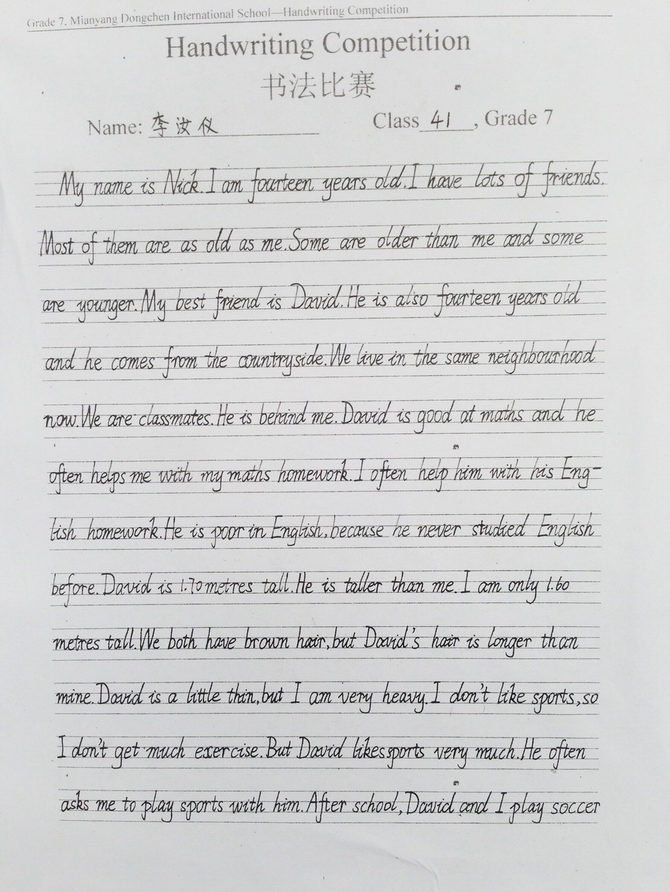 Grade 7, Mianyang Dongchen International School—Handwriting Competition
Handwriting Competition
书法比赛
Name: 李汝仪 Class 41, Grade 7
My name is Nick. I am fourteen years old. I have lots of friends.
Most of them are as old as me. Some are older than me and some
are younger. My best friend is David. He is also fourteen years old
and he comes from the countryside. We live in the same neighbourhood
now. We are classmates. He is behind me. David is good at maths and he
often helps me with my maths homework. I often help him with his Eng-
lish homework. He is poor in English, because he never studied English
before. David is 1.70 metres tall. He is taller than me. I am only 1.60
metres tall. We both have brown hair, but David's hair is longer than
mine. David is a little thin, but I am very heavy. I don't like sports, so
I don't get much exercise. But David likes sports very much. He often
asks me to play sports with him. After school, David and I play soccer